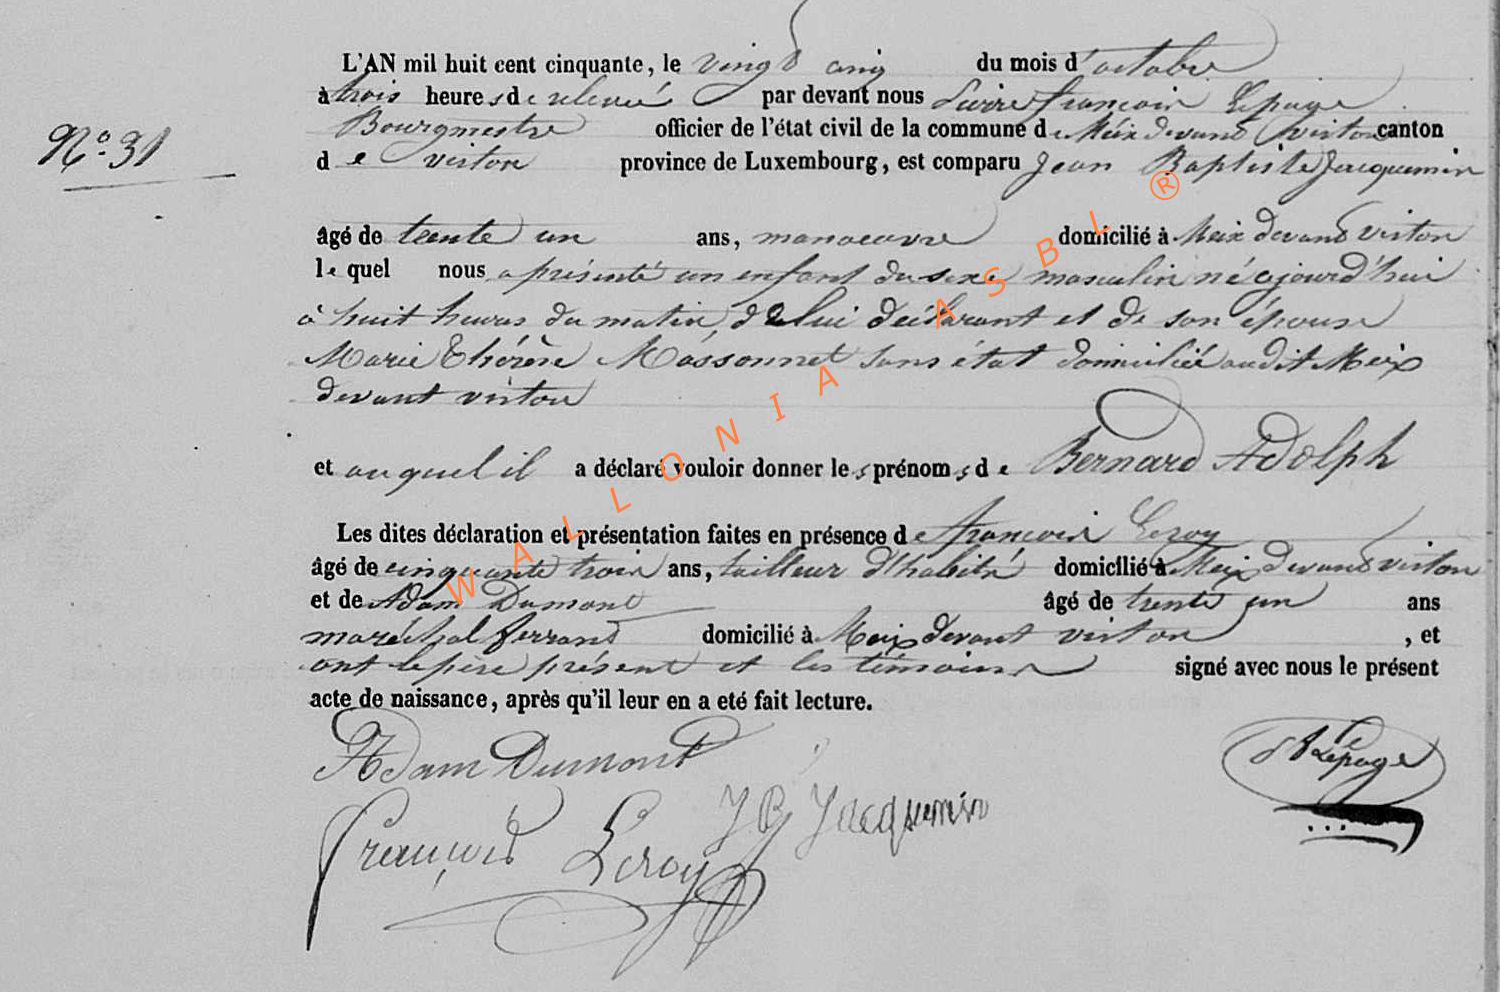 L'AN mil huit cent cinquante, le vingt cinq du mois d'octobre
à trois heures de relevée par devant nous françois Lepage
N.º 31
Bourgmestre officier de l'état civil de la commune de Meix devant virton canton
de virton province de Luxembourg, est comparu Jean Baptiste Jacquemin
âgé de trente un ans, manoeuvre domicilié à Meix devant virton
lequel nous a présenté un enfant du sexe masculin né aujourd'hui
à huit heures du matin, de lui déclarant et de son épouse
Marie Thérèse Massonnet sans état domiciliée audit Meix
devant virton
et auquel il a déclaré vouloir donner les prénoms de Bernard Adolph
Les dites déclaration et présentation faites en présence de françois Leroy
âgé de cinquante trois ans, tailleur d'habits domicilié à Meix devant virton
et de Adam Dumont âgé de trente un ans
maréchal ferrant domicilié à Meix devant virton , et
ont le père présent et les témoins signé avec nous le présent
acte de naissance, après qu'il leur en a eté fait lecture.
Adam Dumont
Lepage
JB Jacquemin
françois Leroy
WALLONIA ASBL ®